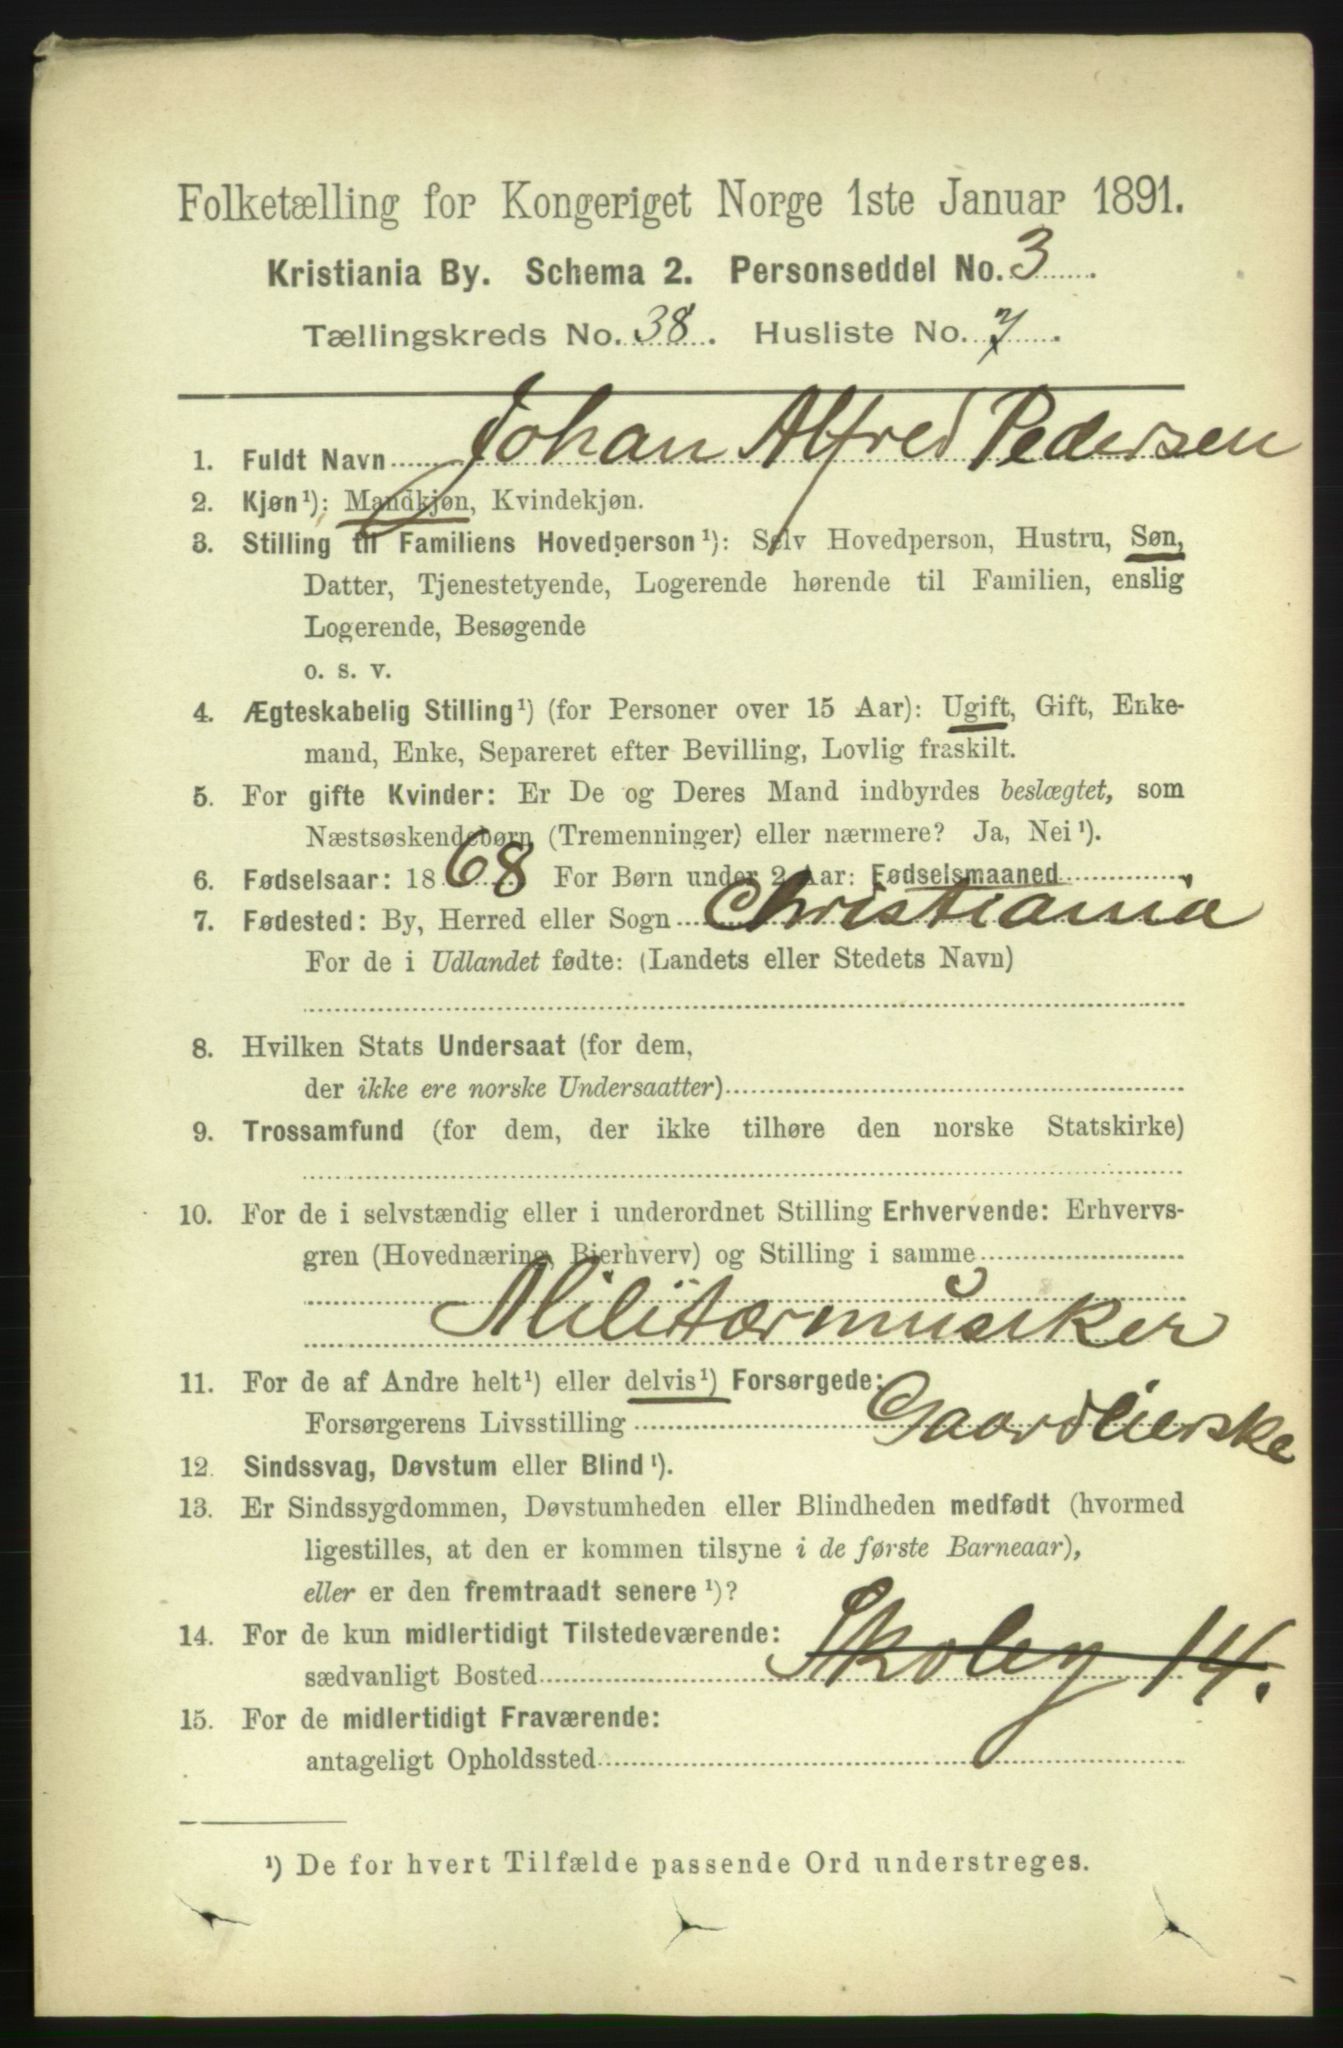 Folketælling for Kongeriget Norge 1ste Januar 1891.
Kristiania By. Schema 2. Personseddel No. 3
Tællingskreds No. 38. Husliste No. 7.
1. Fuldt Navn Johan Alfred Pedersen
2. Kjøn¹): Mandkjøn, Kvindekjøn.
3. Stilling til Familiens Hovedperson¹): Selv Hovedperson, Hustru, Søn,
Datter, Tjenestetyende, Logerende hørende til Familien, enslig
Logerende, Besøgende
o. s. v.
4. Ægteskabelig Stilling¹) (for Personer over 15 Aar): Ugift, Gift, Enke-
mand, Enke, Separeret efter Bevilling, Lovlig fraskilt.
5. For gifte Kvinder: Er De og Deres Mand indbyrdes beslægtet, som
Næstsøskendebørn (Tremenninger) eller nærmere? Ja, Nei¹).
6. Fødselsaar: 1868 For Børn under 2 Aar: Fødselsmaaned
7. Fødested: By, Herred eller Sogn Christiania
For de i Udlandet fødte: (Landets eller Stedets Navn)
8. Hvilken Stats Undersaat (for dem,
der ikke ere norske Undersaatter)
9. Trossamfund (for dem, der ikke tilhøre den norske Statskirke)
10. For de i selvstændig eller i underordnet Stilling Erhvervende: Erhvervs-
gren (Hovednæring, Bierhverv) og Stilling i samme
Militærmusiker
11. For de af Andre helt¹) eller delvis¹) Forsørgede:
Forsørgerens Livsstilling Gaardeierske
12. Sindssvag, Døvstum eller Blind¹).
13. Er Sindssygdommen, Døvstumheden eller Blindheden medfødt (hvormed
ligestilles, at den er kommen tilsyne i de første Barneaar),
eller er den fremtraadt senere¹)?
14. For de kun midlertidigt Tilstedeværende:
sædvanligt Bosted Skoleg 14.
15. For de midlertidigt Fraværende:
antageligt Opholdssted
¹) De for hvert Tilfælde passende Ord understreges.